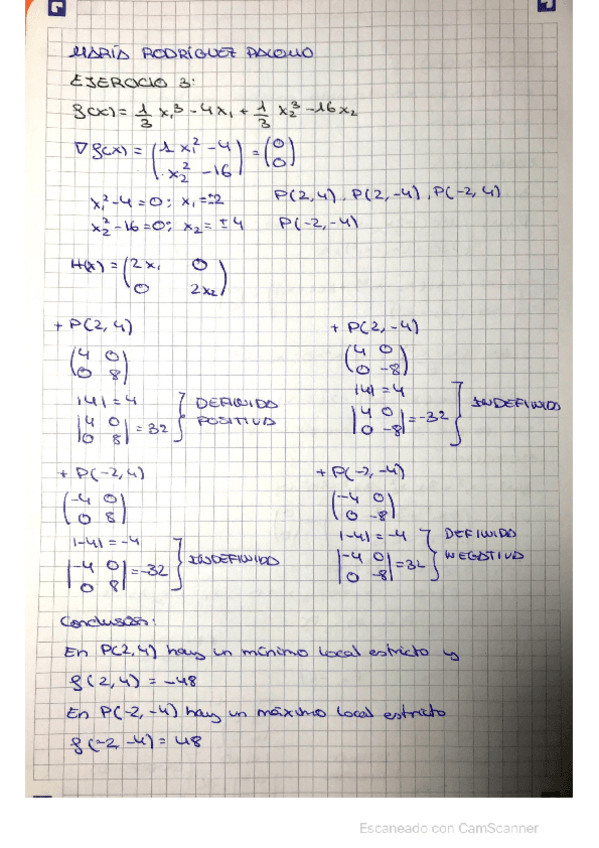 MARÍA RODRÍGUEZ PALOMO
EJERCICIO 3:
f(x) = 1/3 x₁³ - 4x₁ + 1/3 x₂³ - 16x₂
∇f(x) = (1 x₁² - 4 / x₂² - 16) = (0 / 0)
x₁² - 4 = 0; x₁ = ±2 P(2,4), P(2,-4), P(-2,4)
x₂² - 16 = 0; x₂ = ±4 P(-2,-4)
H(x) = (2x₁ 0 / 0 2x₂)
+ P(2,4)
(4 0 / 0 8)
|4| = 4
|4 0 / 0 8| = 32
DEFINIDO
POSITIVO
+ P(2,-4)
(4 0 / 0 -8)
|4| = 4
|4 0 / 0 -8| = -32
INDEFINIDO
+ P(-2,4)
(-4 0 / 0 8)
|-4| = -4
|-4 0 / 0 8| = -32
INDEFINIDO
+ P(-2,-4)
(-4 0 / 0 -8)
|-4| = -4
|-4 0 / 0 -8| = 32
DEFINIDO
NEGATIVO
Conclusión:
En P(2,4) hay un mínimo local estricto y
f(2,4) = -48
En P(-2,-4) hay un máximo local estricto
f(-2,-4) = 48
Escaneado con CamScanner